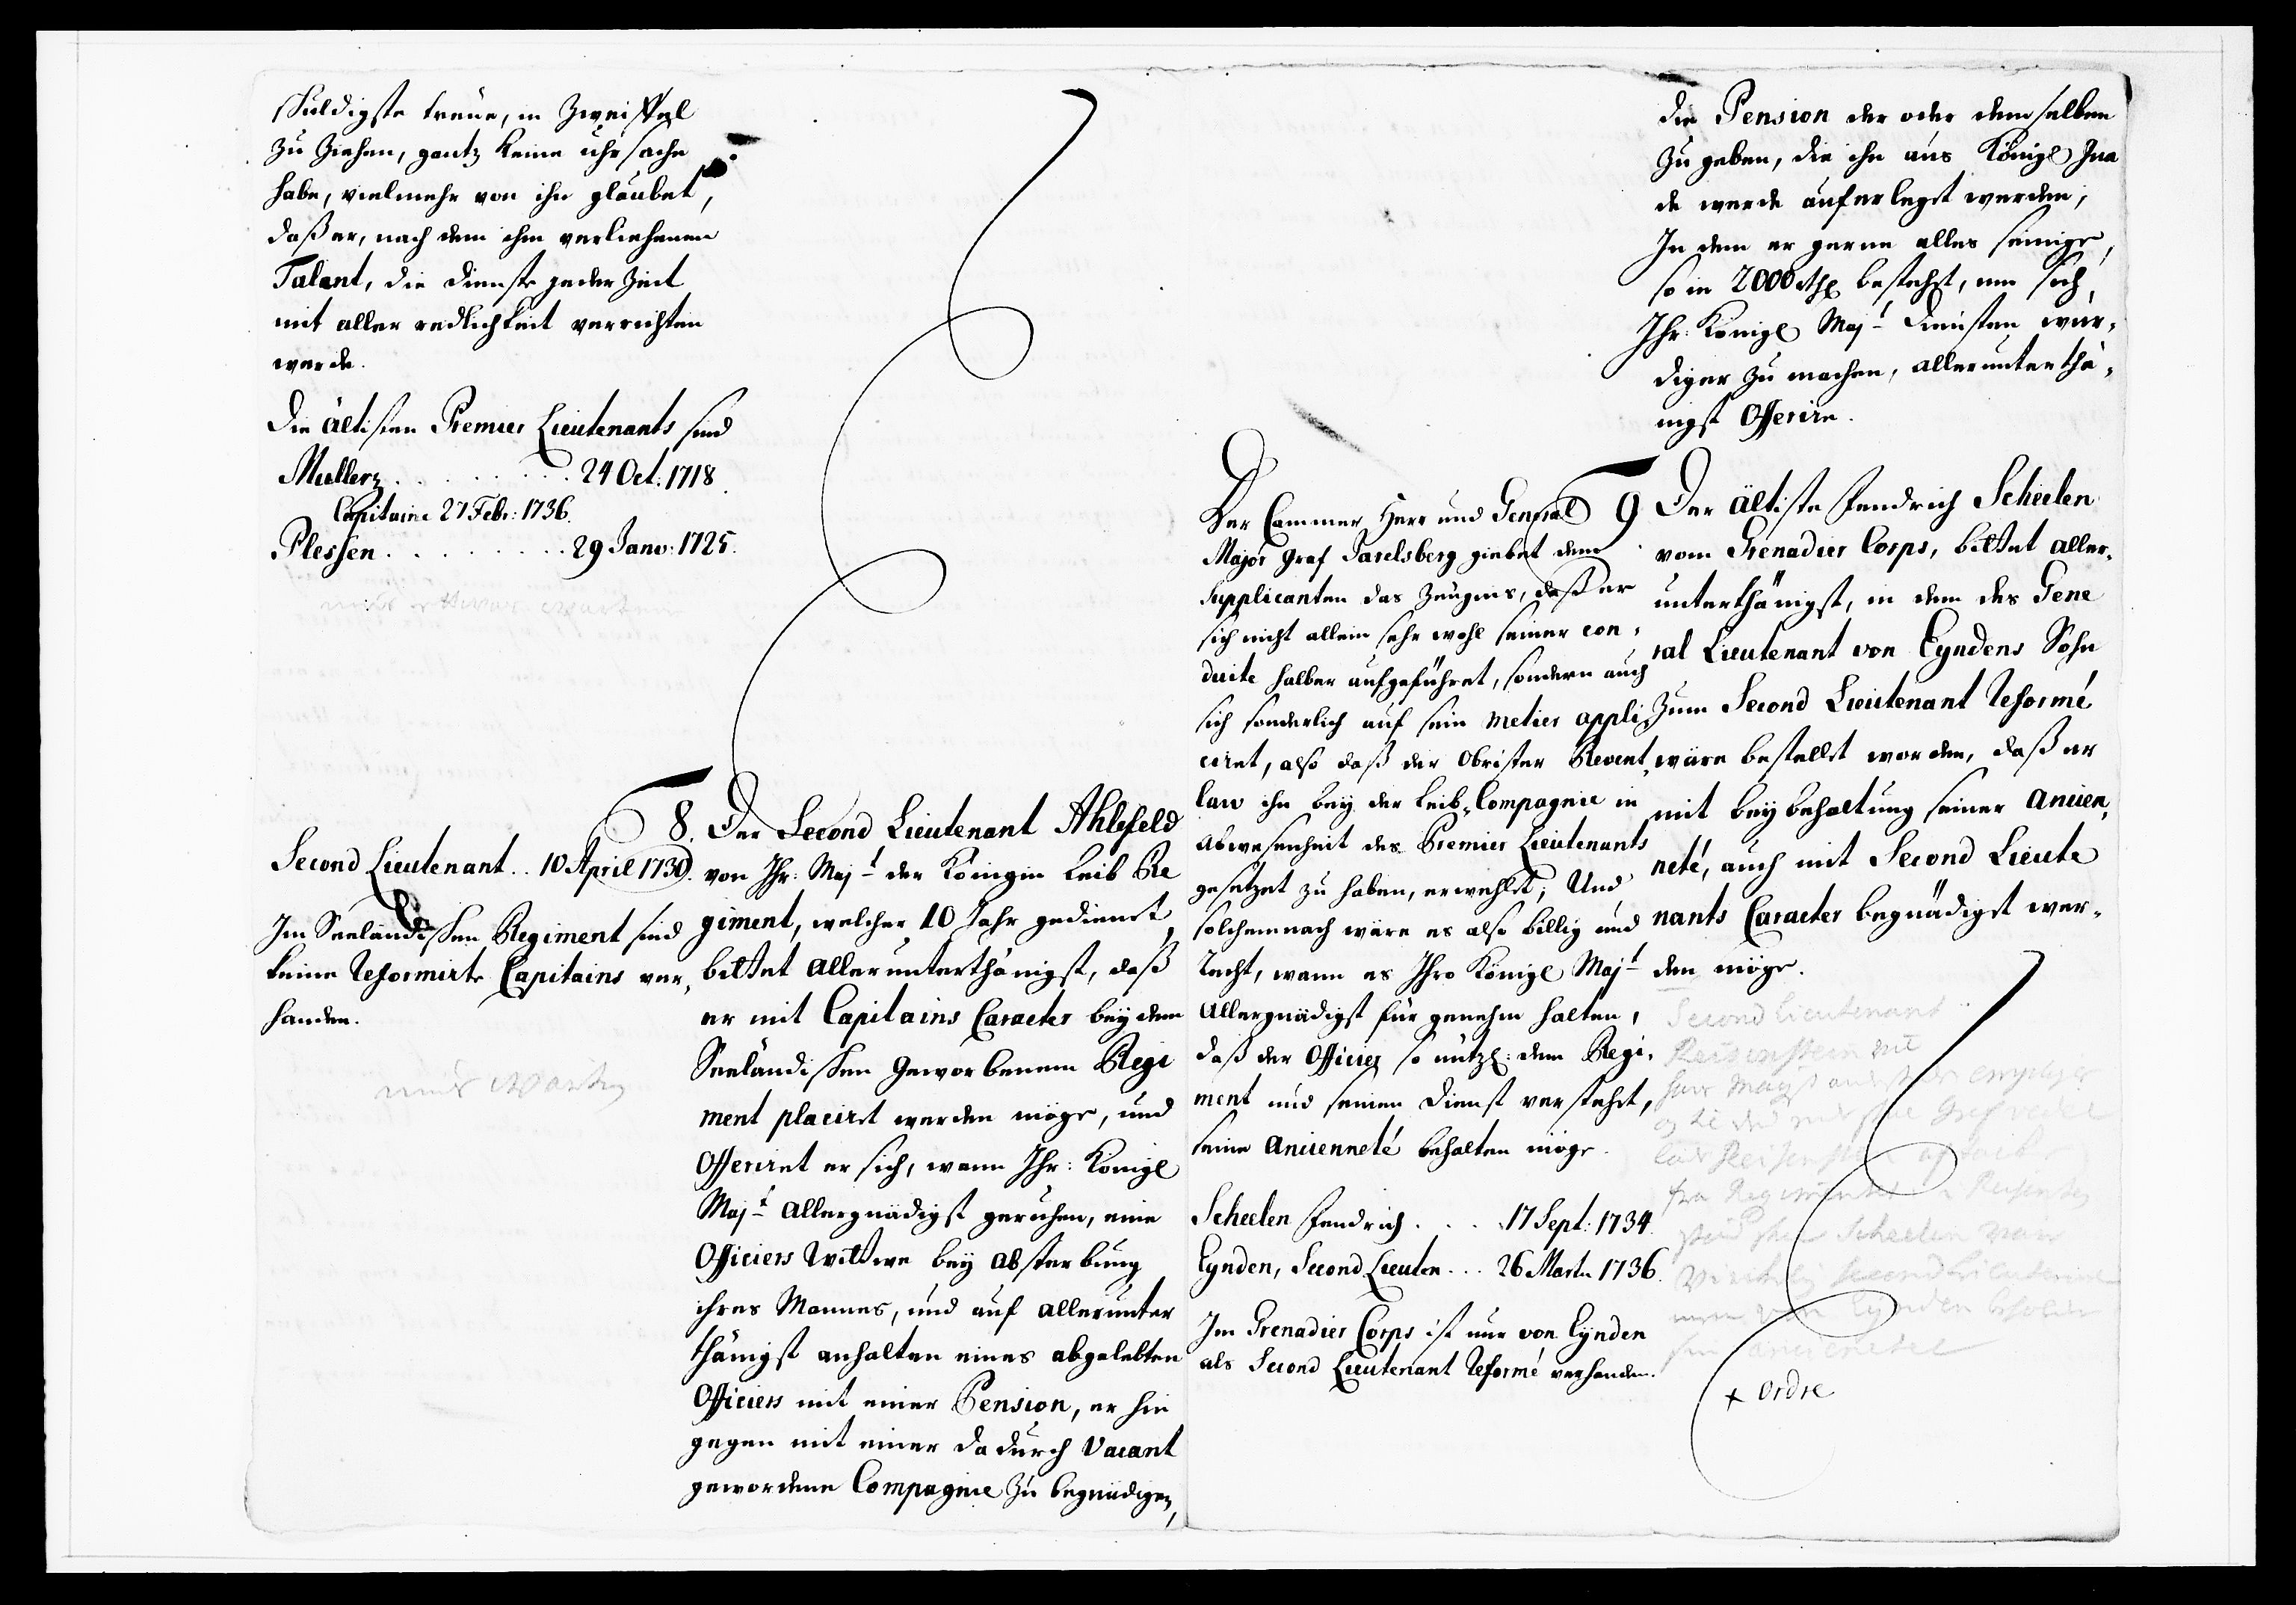 schuldigste treue, in Zweiffel
zu ziehen, gantz keine uhrsache
habe, vielmehr von ihn glaubet,
daß er, nach dem ihm verliehenen
Talent, die Dienste jeder Zeit
mit aller redlichkeit verrichten
werde.
Die ältisten Premier Lieutenants sind
Muller . . . . . . . . 24 Oct: 1718.
Capitaine 27 Febr: 1736.
Plessen . . . . . . . . . 29 Janv: 1725.
Second Lieutenant . . 10 April 1730.
Im Seeländischen Regiment sind
keine Reformirte Capitains ver¬
handen.
mus warten
8. Der Second Lieutenant Ahlefeld
von Ihr: Majt der Königin Leib Re
giment, welcher 10 Jahr gedienet,
bittet allerunterthänigst, daß
er mit Capitains Caracter bey dem
Seeländischen geworbenem Regi
ment placiret werden möge, und
Offeriret er sich, wann Ihr: Königl
Majt allergnädigst geruhen, eine
Officiers Wittwe bey absterbung
ihres Mannes, und auf allerunter
thänigst anhalten eines abgelebten
Officiers mit einer Pension, er hin
gegen mit einer dadurch Vacant
gewordene Compagnie zu begnädigen,
die Pension der oder demselben
zu geben, die ihn aus Königl Gna
de werde auferleget werden,
In dem er gerne alles seinige,
so in 2000 Rthl bestehet, um sich,
Ihr: Königl Majt Diensten wür¬
diger zu machen, allerunterthä¬
nigst Offerire.
Der Cammer Herr und General
Major Graf Danelsberg giebet dem
Supplicanten das Zeugnis, daß er
sich nicht allein sehr wohl seiner con¬
duite halber aufgeführet, sondern auch
sich sonderlich auf sein metier appli
ciret, also daß der Obrister Revent¬
lau ihn bey der Leib-Compagnie in
Abwesenheit des Premier Lieutenants
gesetzet zu haben, erwehlet; Und
solchemnach wäre es also billig und
recht, wann es Ihro Königl Majt
Allergnädigst für genehm halten,
daß der Officier so nützl: dem Regi¬
ment und seinen Dienst verstehet,
seine Ancienneté behalten möge.
Scheelen Fendrich . . . . 17 Sept: 1734.
Eynden, Second Lieuten . . . 26 Marti 1736.
Im Grenadier Corps ist nur von Eynden
als Second Lieutenant Reformé verhanden.
9 Der ältiste Fendrich Scheelen
vom Grenadier Corps, bittet aller¬
unterthänigst, in dem des Gene
ral Lieutenant von Eyndens Sohn
zum Second Lieutenant Reformé
wäre bestellet worden, daß er
mit beybehaltung seiner Ancien¬
neté, auch mit Second Lieute
nants Caracter begnädiget wer¬
den möge.
Second Lieutenant
fra Regimentet
Scheelen
Second Lieutenant
von Eynden
+ Ordre